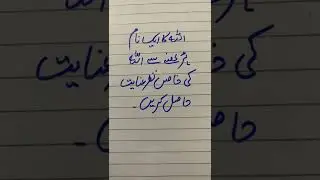 اللہ کا ایک نام
پڑھنے سے اللہ
کی خاص نظر عنایت
حاصل کریں۔